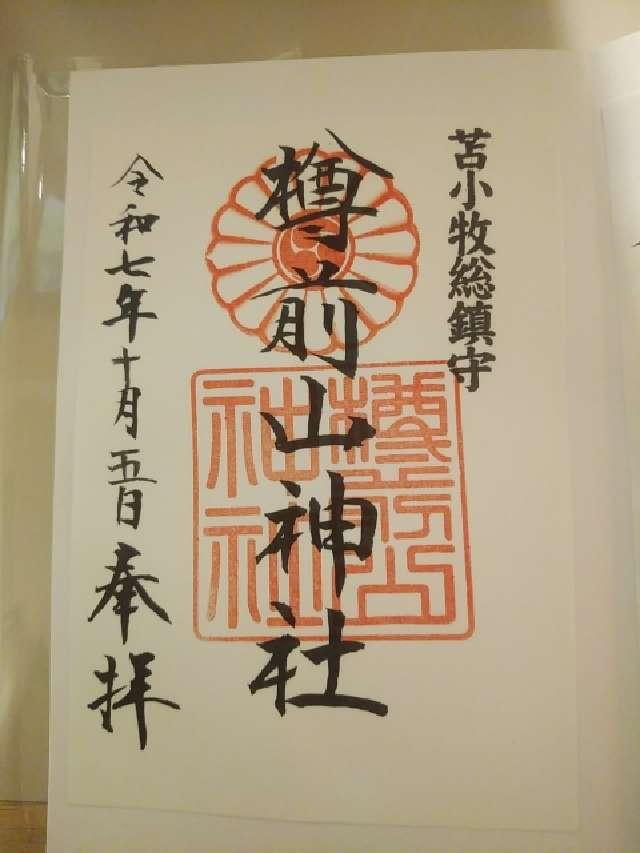 苫小牧総鎮守
樽前山神社
樽前山神社
令和七年十月五日奉拝